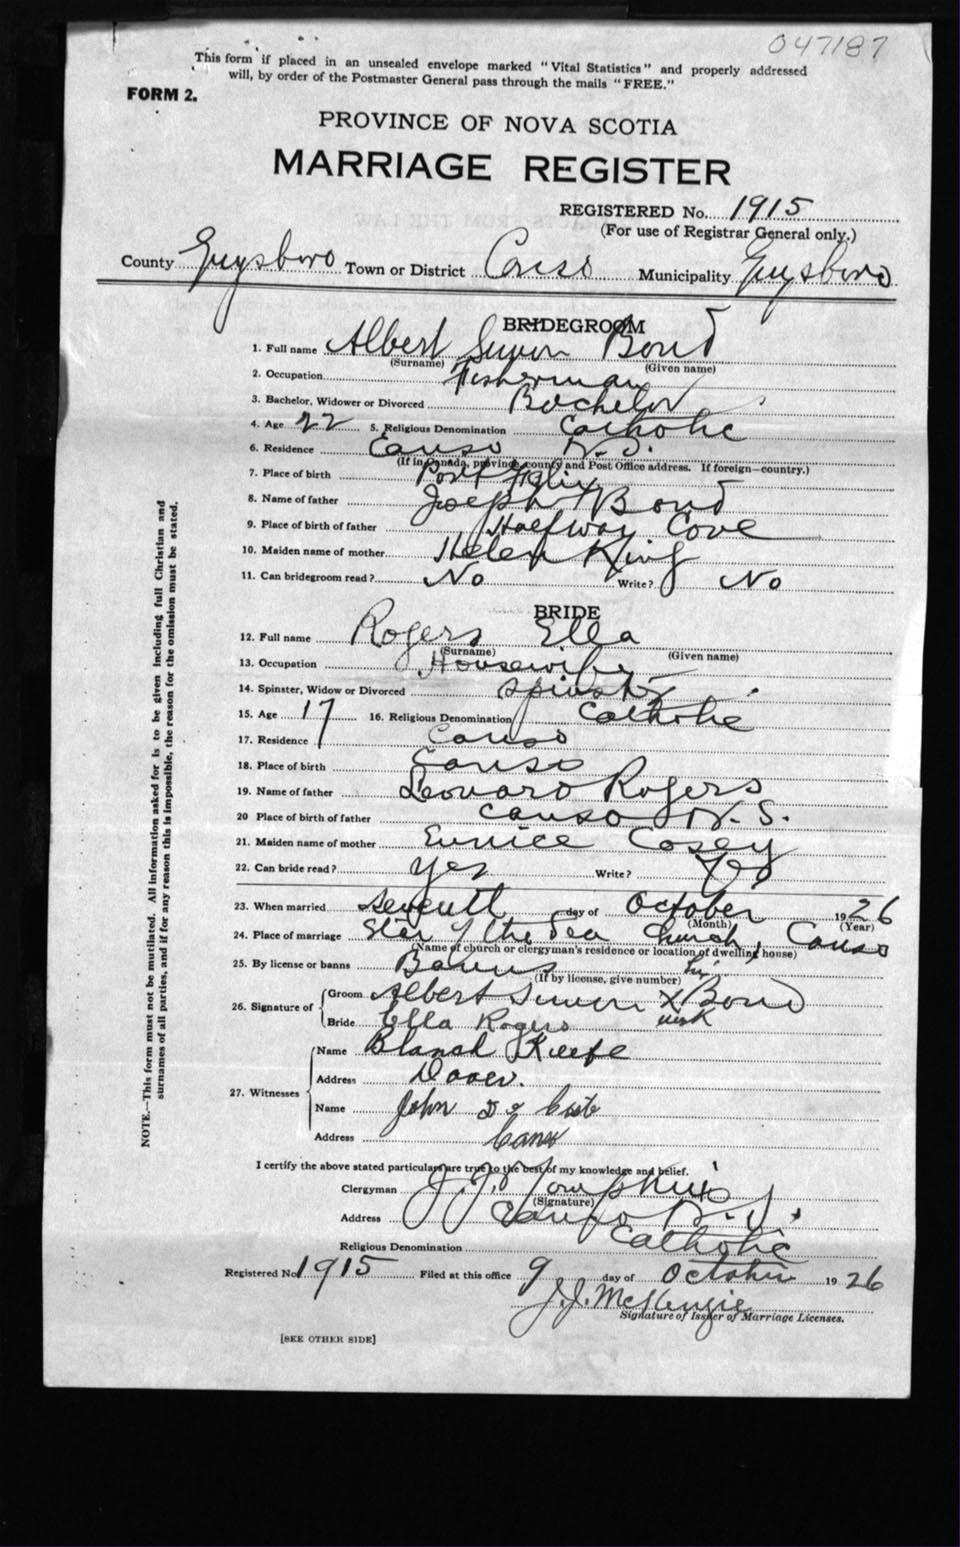 047187
This form if placed in an unsealed envelope marked "Vital Statistics" and properly addressed
will, by order of the Postmaster General pass through the mails "FREE."
FORM 2.
PROVINCE OF NOVA SCOTIA
MARRIAGE REGISTER
REGISTERED No. 1915
(For use of Registrar General only.)
County Guysboro Town or District Canso Municipality Guysboro
BRIDEGROOM
1. Full name Albert Simon Bond
(Surname) (Given name)
2. Occupation Fisherman
3. Bachelor, Widower or Divorced Bachelor
4. Age 22 5. Religious Denomination Catholic
6. Residence Canso N. S.
(If in Canada, province, county and Post Office address. If foreign—country.)
7. Place of birth Port Felix
8. Name of father Joseph Bond
9. Place of birth of father Halfway Cove
10. Maiden name of mother Helen King
11. Can bridegroom read? No Write? No
BRIDE
12. Full name Rogers Ella
(Surname) (Given name)
13. Occupation Housewife
14. Spinster, Widow or Divorced Spinster
15. Age 17 16. Religious Denomination Catholic
17. Residence Canso
18. Place of birth Canso
19. Name of father Leonard Rogers
20 Place of birth of father Canso N. S.
21. Maiden name of mother Eunice Cosey
22. Can bride read? Yes Write? Yes
23. When married Seventh day of October 1926
(Month) (Year)
24. Place of marriage Star of the Sea Church, Canso
(Name of church or clergyman's residence or location of dwelling house)
25. By license or banns Banns
(If by license, give number)
his
26. Signature of Groom Albert Simon X Bond
mark
Bride Ella Rogers
27. Witnesses
Name Blanch Keefe
Address Dover.
Name John
Address Canso
I certify the above stated particulars are true to the best of my knowledge and belief.
Clergyman J. J. Tompkins
(Signature)
Address Canso N. S.
Religious Denomination Catholic
Registered No 1915 Filed at this office 9 day of October 1926
J. J. McKenzie
Signature of Issuer of Marriage Licenses.
[SEE OTHER SIDE]
NOTE.—This form must not be mutilated. All information asked for is to be given including full Christian and
surnames of all parties, and if for any reason this is impossible, the reason for the omission must be stated.